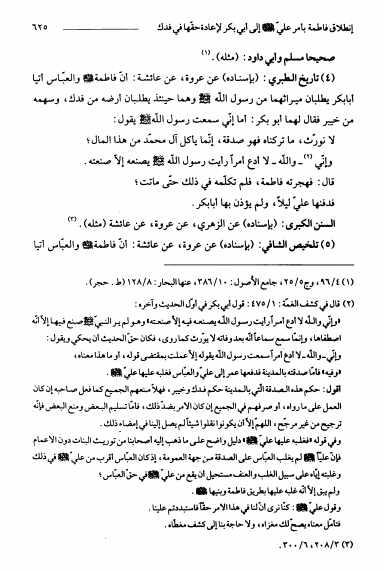 إنطلاق فاطمة بأمر عليّ ﷺ إلى أبي بكر لإعادة حقّها في فدك ٦٢٥
صحيحا مسلم وأبي داود: (مثله). (١)
(٤) تاريخ الطبري: (بإسناده) عن عروة، عن عائشة: أنّ فاطمة والعبّاس أتيا
أبابكر يطلبان ميراثهما من رسول الله ﷺ وهما حينئذ يطلبان أرضه من فدك، وسهمه
من خيبر فقال لهما أبو بكر: أما إنّي سمعت رسول الله ﷺ يقول:
لا نورّث، ما تركناه فهو صدقة، إنّما يأكل آل محمّد من هذا المال؛
وإنّي (٢) ـ والله ـ لا أدع أمراً رأيت رسول الله ﷺ يصنعه إلّا صنعته.
قال: فهجرته فاطمة، فلم تكلّمه في ذلك حتّى ماتت؛
فدفنها عليّ ليلاً، ولم يؤذن بها أبابكر.
السنن الكبرى: (بإسناده) عن الزهري، عن عروة، عن عائشة (مثله). (٣)
(٥) تلخيص الشافي: (بإسناده) عن عروة، عن عائشة: أنّ فاطمة والعبّاس أتيا
(١) ٩٦/٤، وج ٢٥/٥، جامع الأصول: ٣٨٦/١٠، عنها البحار: ١٢٨/٨ (ط. حجر).
(٢) قال في كشف الغمّة: ٤٧٥/١: قول أبي بكر في أوّل الحديث وآخره:
«وإنّي والله لا أدع أمراً رأيت رسول الله يصنعه فيه إلّا صنعته» وهو لم ير النبيّ ﷺ صنع فيها إلّا أنّه
اصطفاها، وإنّما سمع سماعاً أنّه بعد وفاته لا يورّث كما روى، فكان حقّ الحديث أن يحكي ويقول:
وإنّي ـ والله ـ لا أدع أمراً سمعت رسول الله يقوله إلّا عملت بمقتضى قوله، أو ما هذا معناه،
«وفيه» فأمّا صدقته بالمدينة فدفعها عمر إلى عليّ والعبّاس فغلبه عليها عليّ.
أقول: حكم هذه الصدقة التي بالمدينة حكم فدك وخيبر، فهلّا منعهم الجميع كما فعل صاحبه إن كان
العمل على ما رواه، أو صرفهم في الجميع إن كان الأمر بضدّ ذلك، فأمّا تسليم البعض ومنع البعض فإنّه
ترجيح من غير مرجّح، اللهمّ إلّا أن يكونوا نقلوا شيئاً لم يصل إلينا في إمضاء ذلك.
وفي قوله «فغلبه عليها عليّ» دليل واضح على ما ذهب إليه أصحابنا من توريث البنات دون الأعمام
فإنّ عليّاً لم يغلب العبّاس على الصدقة من جهة العمومة، إذ كان العبّاس أقرب من عليّ في ذلك
وغلبته إيّاه على سبيل الغلب والعنف مستحيل أن يقع من عليّ في حقّ العبّاس؛
ولم يبق إلّا أنّه غلبه عليها بطريق فاطمة وبنيها.
وقول عليّ: كنّا نرى أنّ لنا في هذا الأمر حقّاً فاستبددتم علينا.
فتأمّل معناه يصحّ لك مغزاه، ولا حاجة بنا إلى كشف مغطّاه.
(٣) ٢٠٨/٣، ٣٠٠/٦.